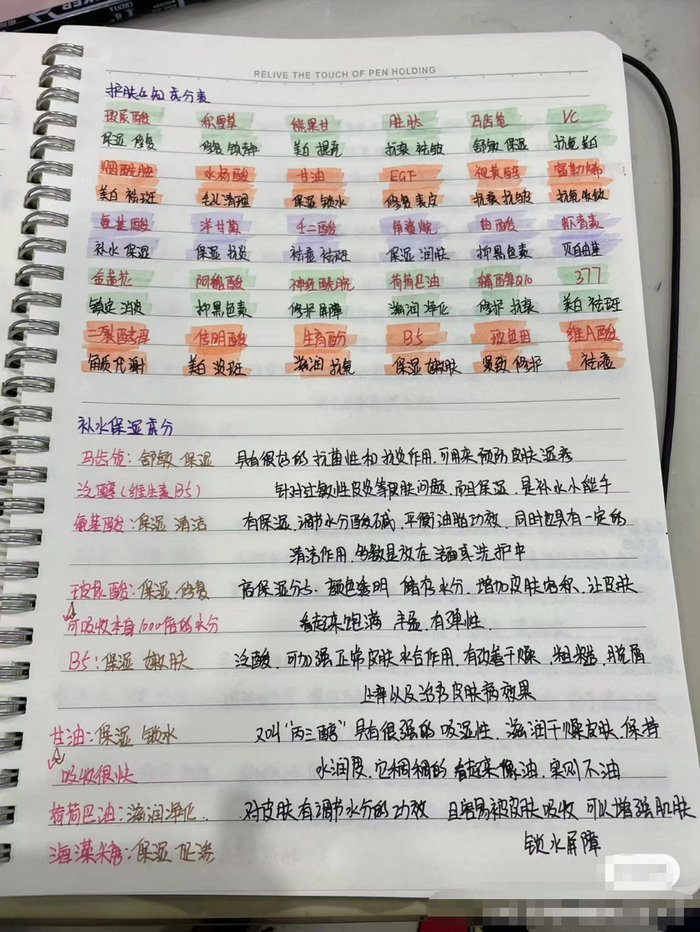 RELIVE THE TOUCH OF PEN HOLDING
护肤必知成分表
玻尿酸 积雪草 熊果苷 胜肽 马齿苋 VC
保湿 修复 修复 镇静 美白 提亮 抗衰 祛皱 舒敏 保湿 抗氧 美白
烟酰胺 水杨酸 甘油 EGF 视黄醇 富勒烯
美白 祛斑 毛孔清理 保湿 锁水 修复 表皮 抗衰 抗皱 抗氧
氨基酸 洋甘菊 壬二酸 角鲨烷 曲酸 虾青素
补水 保湿 保湿 抗炎 祛痘 祛斑 保湿 润肤 抑黑色素 自由基
金盏花 阿魏酸 神经酰胺 荷荷巴油 辅酶Q10 377
镇定 消皮 抑黑色素 修护 屏障 滋润 净化 修护 抗衰 美白 祛斑
二裂酵母 传明酸 生育酚 B5 玻色因 维A酸
角质代谢 美白 淡斑 滋润 抗氧 保湿 嫩肤 紧致 修护 祛痘
补水保湿成分
马齿苋: 舒敏 保湿 具有很好的抗菌性和抗炎作用,可用来预防皮肤湿疹
泛醇(维生素B5) 针对过敏性皮炎等皮肤问题,而且保湿,是补水小能手
氨基酸: 保湿 清洁 有保湿,调节水分酸碱,平衡油脂功效,同时也具有一定的
清洁作用,多数是放在洁面其洗护中
玻尿酸: 保湿 修复 高保湿分子,颜色透明 储存水分,增加皮肤容积,让皮肤
可吸收本身1000倍的水分 看起来饱满 丰盈,有弹性.
B5: 保湿 嫩肤 泛酸,可加强正常皮肤水合作用,有改善干燥、粗糙,脱屑
止痒以及治疗皮肤病效果
甘油: 保湿 锁水 又叫“丙三醇”具有很强的吸湿性,滋润干燥皮肤,保持
吸收很快 水润度,它稠稠的看起来像油,实则不油
荷荷巴油: 滋润净化. 对皮肤有调节水分的功效 且容易被皮肤吸收 可以增强肌肤
锁水屏障
海藻糖: 保湿